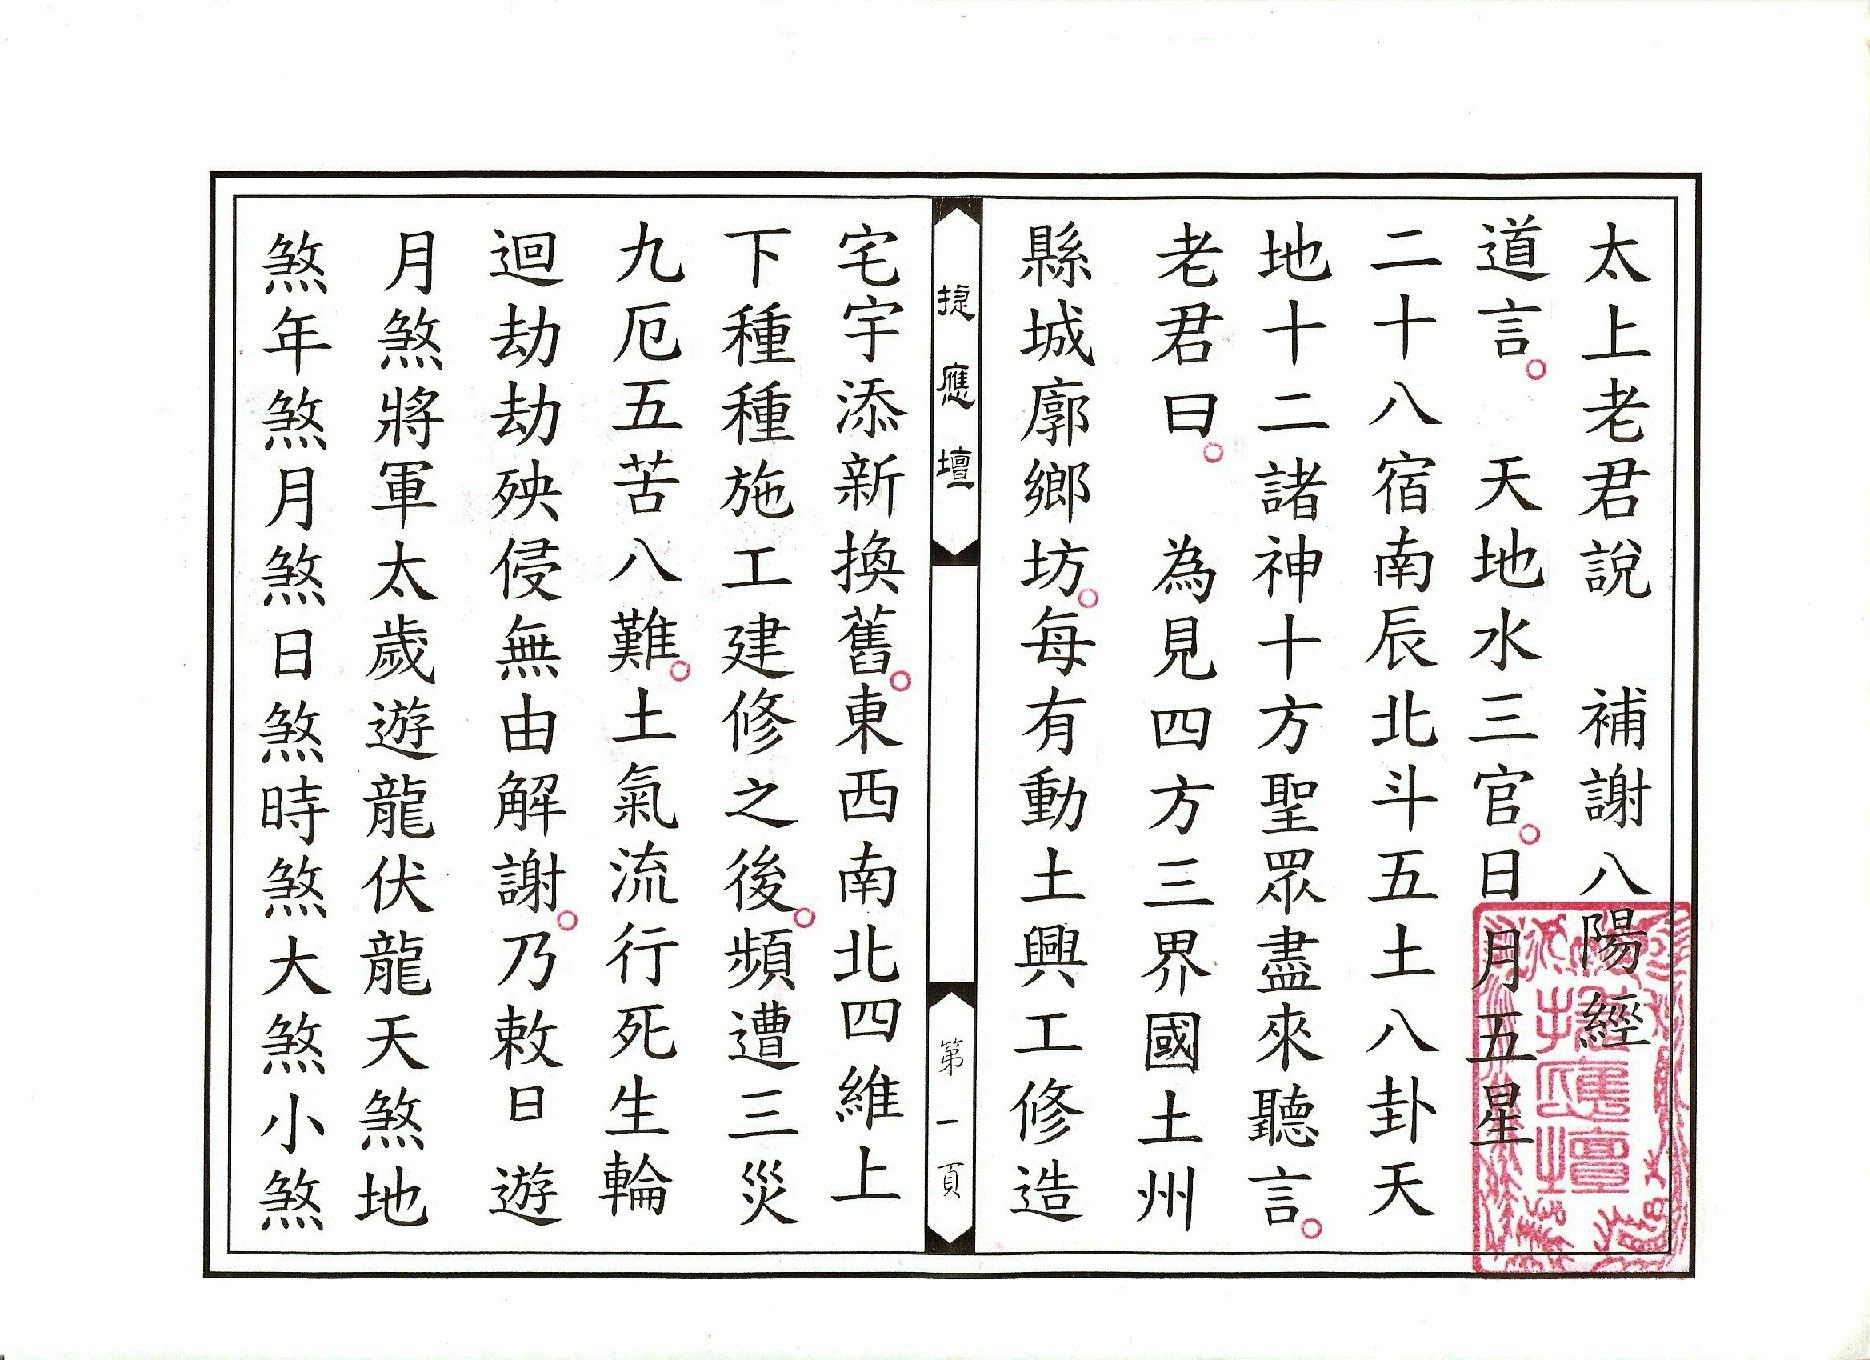 太上老君說　補謝八陽經
道言。　天地水三官。日月五星
二十八宿南辰北斗五土八卦天
地十二諸神十方聖眾盡來聽言。
老君曰。　為見四方三界國土州
縣城廓鄉坊。每有動土興工修造
捷應壇
第一頁
宅宇添新換舊。東西南北四維上
下種種施工建修之後。頻遭三災
九厄五苦八難。土氣流行死生輪
迴劫劫殃侵無由解謝。乃敕日遊
月煞將軍太歲遊龍伏龍天煞地
煞年煞月煞日煞時煞大煞小煞
捷應壇